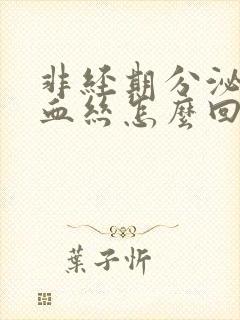 非經期分泌
血絲怎麼回
葉子忻